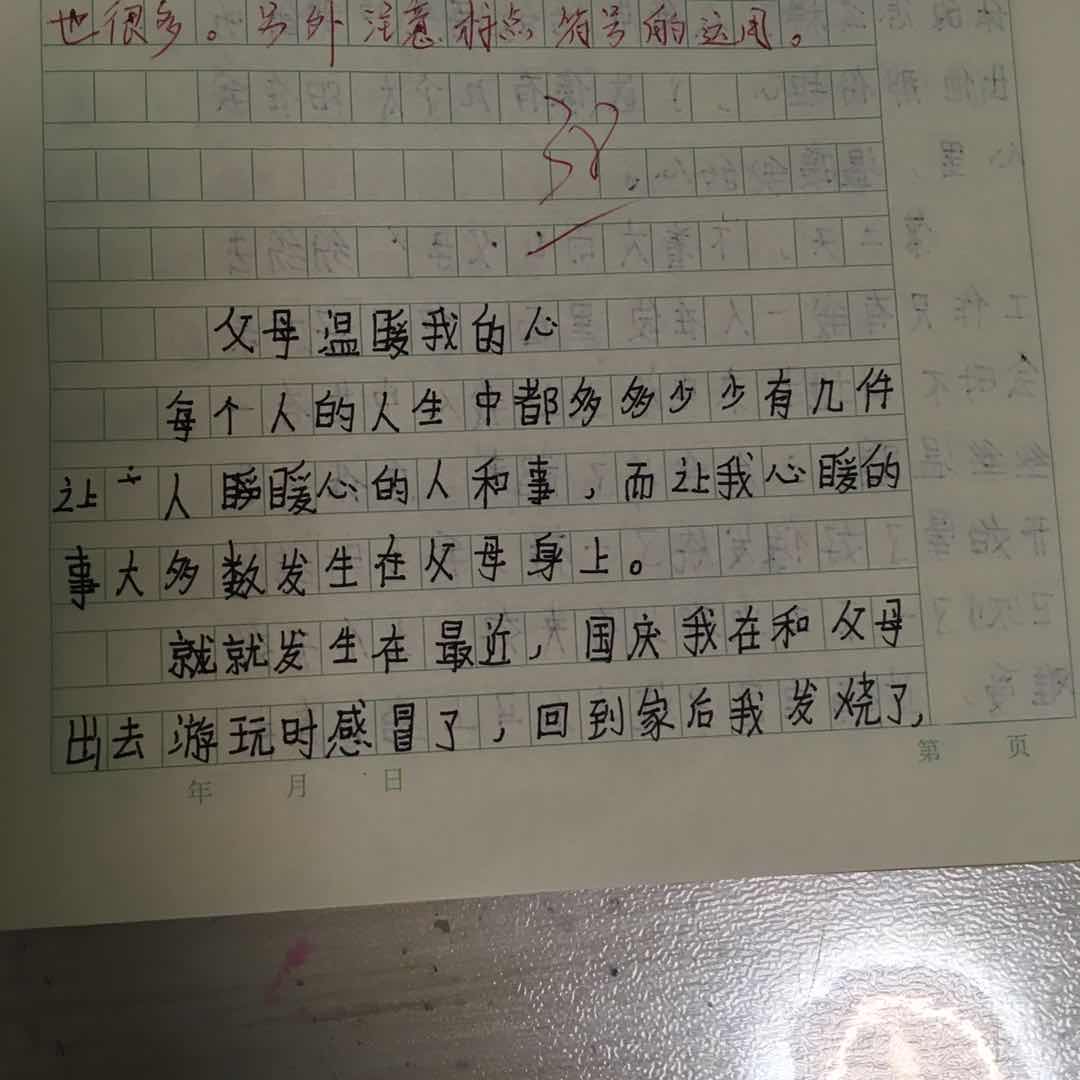 也很多。另外注意标点符号的运用。
38
父母温暖我的心
每个人的人生中都多多少少有几件
让人暖心的人和事，而让我心暖的
事大多数发生在父母身上。
就就发生在最近，国庆我在和父母
出去游玩时感冒了，回到家后我发烧了，
年 月 日
第 页